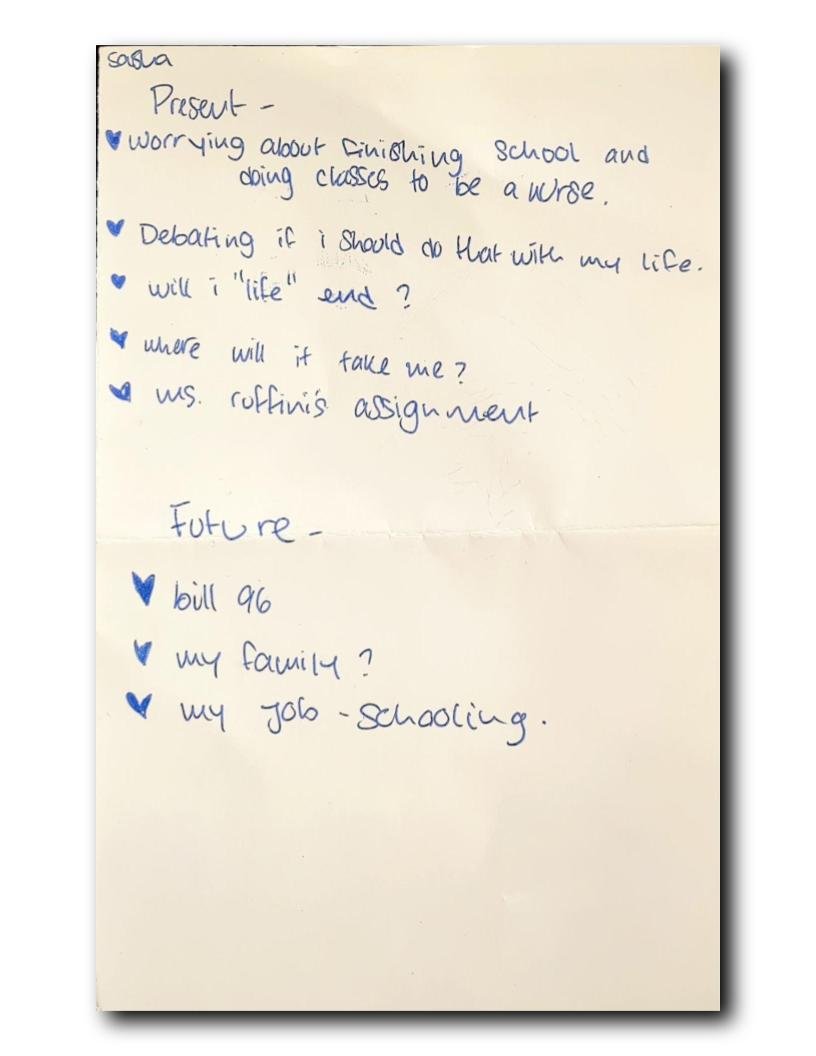 sasha
Present -
worrying about finishing school and
doing classes to be a nurse.
Debating if i should do that with my life.
will i "life" end ?
where will it take me ?
ms. ruffini's assignment
Future -
bill 96
my family ?
my job - schooling.